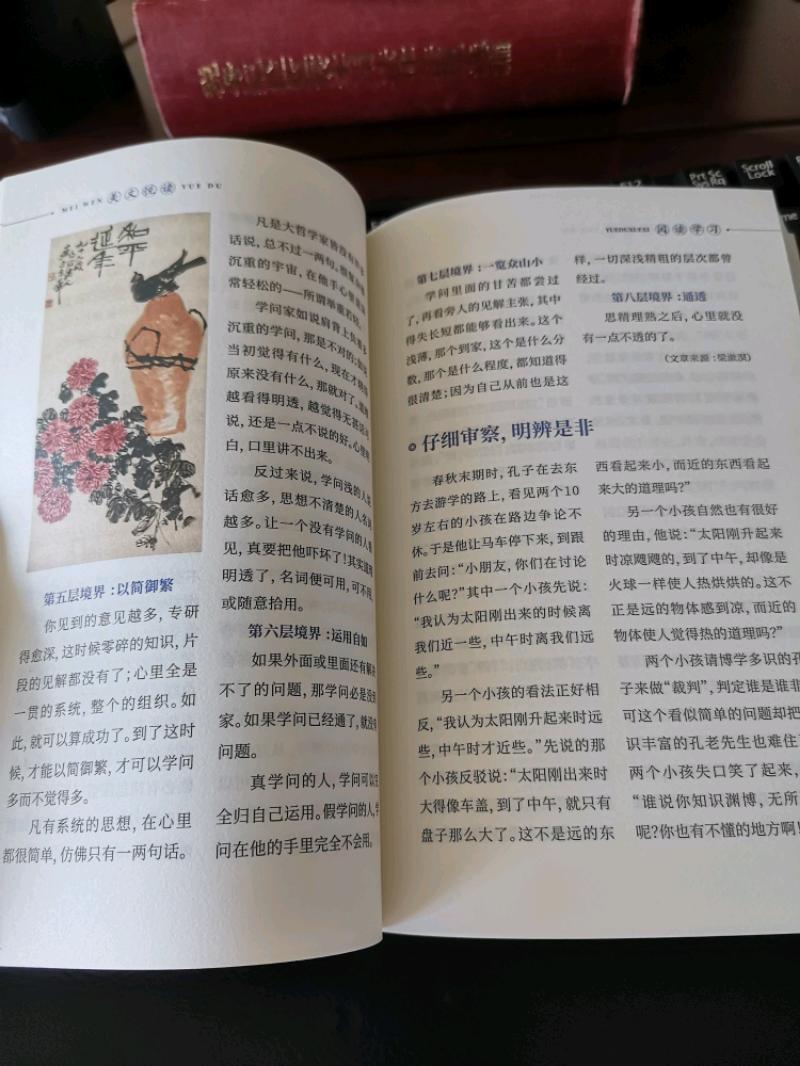 Prt Sc
Sys Rq
Scroll
Lock
F12
MEI WEN 美文悦读 YUE DU
第五层境界：以简御繁
你见到的意见越多，专研
得愈深，这时候零碎的知识，片
段的见解都没有了；心里全是
一贯的系统，整个的组织。如
此，就可以算成功了。到了这时
候，才能以简御繁，才可以学问
多而不觉得多。
凡有系统的思想，在心里
都很简单，仿佛只有一两句话。
凡是大哲学家皆没有
话说，总不过一两句。
沉重的宇宙，在他手心里
常轻松的——所谓举重若轻。
学问家如说肩背上负
沉重的学问，那是不对的；如
当初觉得有什么，现在才
原来没有什么，那就对了。
越看得明透，越觉得无
说，还是一点不说的好。心里
白，口里讲不出来。
反过来说，学问浅的人
话愈多，思想不清楚的人名
越多。让一个没有学问的人
见，真要把他吓坏了！其实
明透了，名词便可用，可不
或随意拾用。
第六层境界：运用自如
如果外面或里面还有解
不了的问题，那学问必是没
家。如果学问已经通了，就没
问题。
真学问的人，学问可以
全归自己运用。假学问的人，学
问在他的手里完全不会用。
YUEDUXUEXI 阅读学习
第七层境界：一览众山小
学问里面的甘苦都尝过
了，再看旁人的见解主张，其中
得失长短都能够看出来。这个
浅薄，那个到家，这个是什么分
数，那个是什么程度，都知道得
很清楚；因为自己从前也是这
样，一切深浅精粗的层次都曾
经过。
第八层境界：通透
思精理熟之后，心里就没
有一点不透的了。
（文章来源：梁漱溟）
仔细审察，明辨是非
春秋末期时，孔子在去东
方去游学的路上，看见两个10
岁左右的小孩在路边争论不
休。于是他让马车停下来，到跟
前去问：“小朋友，你们在讨论
什么呢？”其中一个小孩先说：
“我认为太阳刚出来的时候离
我们近一些，中午时离我们远
些。”
另一个小孩的看法正好相
反，“我认为太阳刚升起来时远
些，中午时才近些。”先说的那
个小孩反驳说：“太阳刚出来时
大得像车盖，到了中午，就只有
盘子那么大了。这不是远的东
西看起来小，而近的东西看起
来大的道理吗？”
另一个小孩自然也有很好
的理由，他说：“太阳刚升起来
时凉飕飕的，到了中午，却像是
火球一样使人热烘烘的。这不
正是远的物体感到凉，而近的
物体使人觉得热的道理吗？”
两个小孩请博学多识的孔
子来做“裁判”，判定谁是谁非
可这个看似简单的问题却把
识丰富的孔老先生也难住了
两个小孩失口笑了起来，
“谁说你知识渊博，无所
呢？你也有不懂的地方啊！